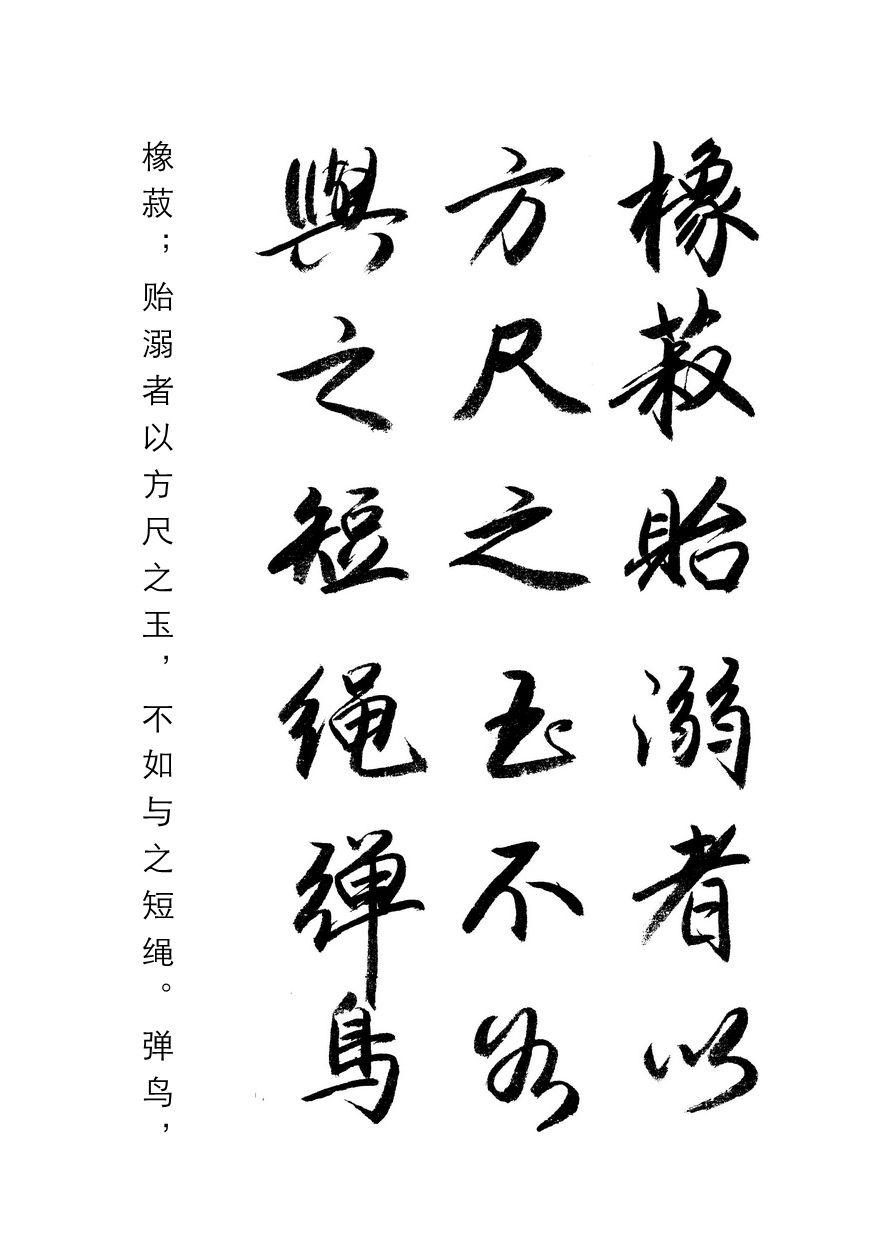 橡菽貽溺者以
方尺之玉不如
與之短绳弹鳥
橡菽；贻溺者以方尺之玉，不如与之短绳。弹鸟，